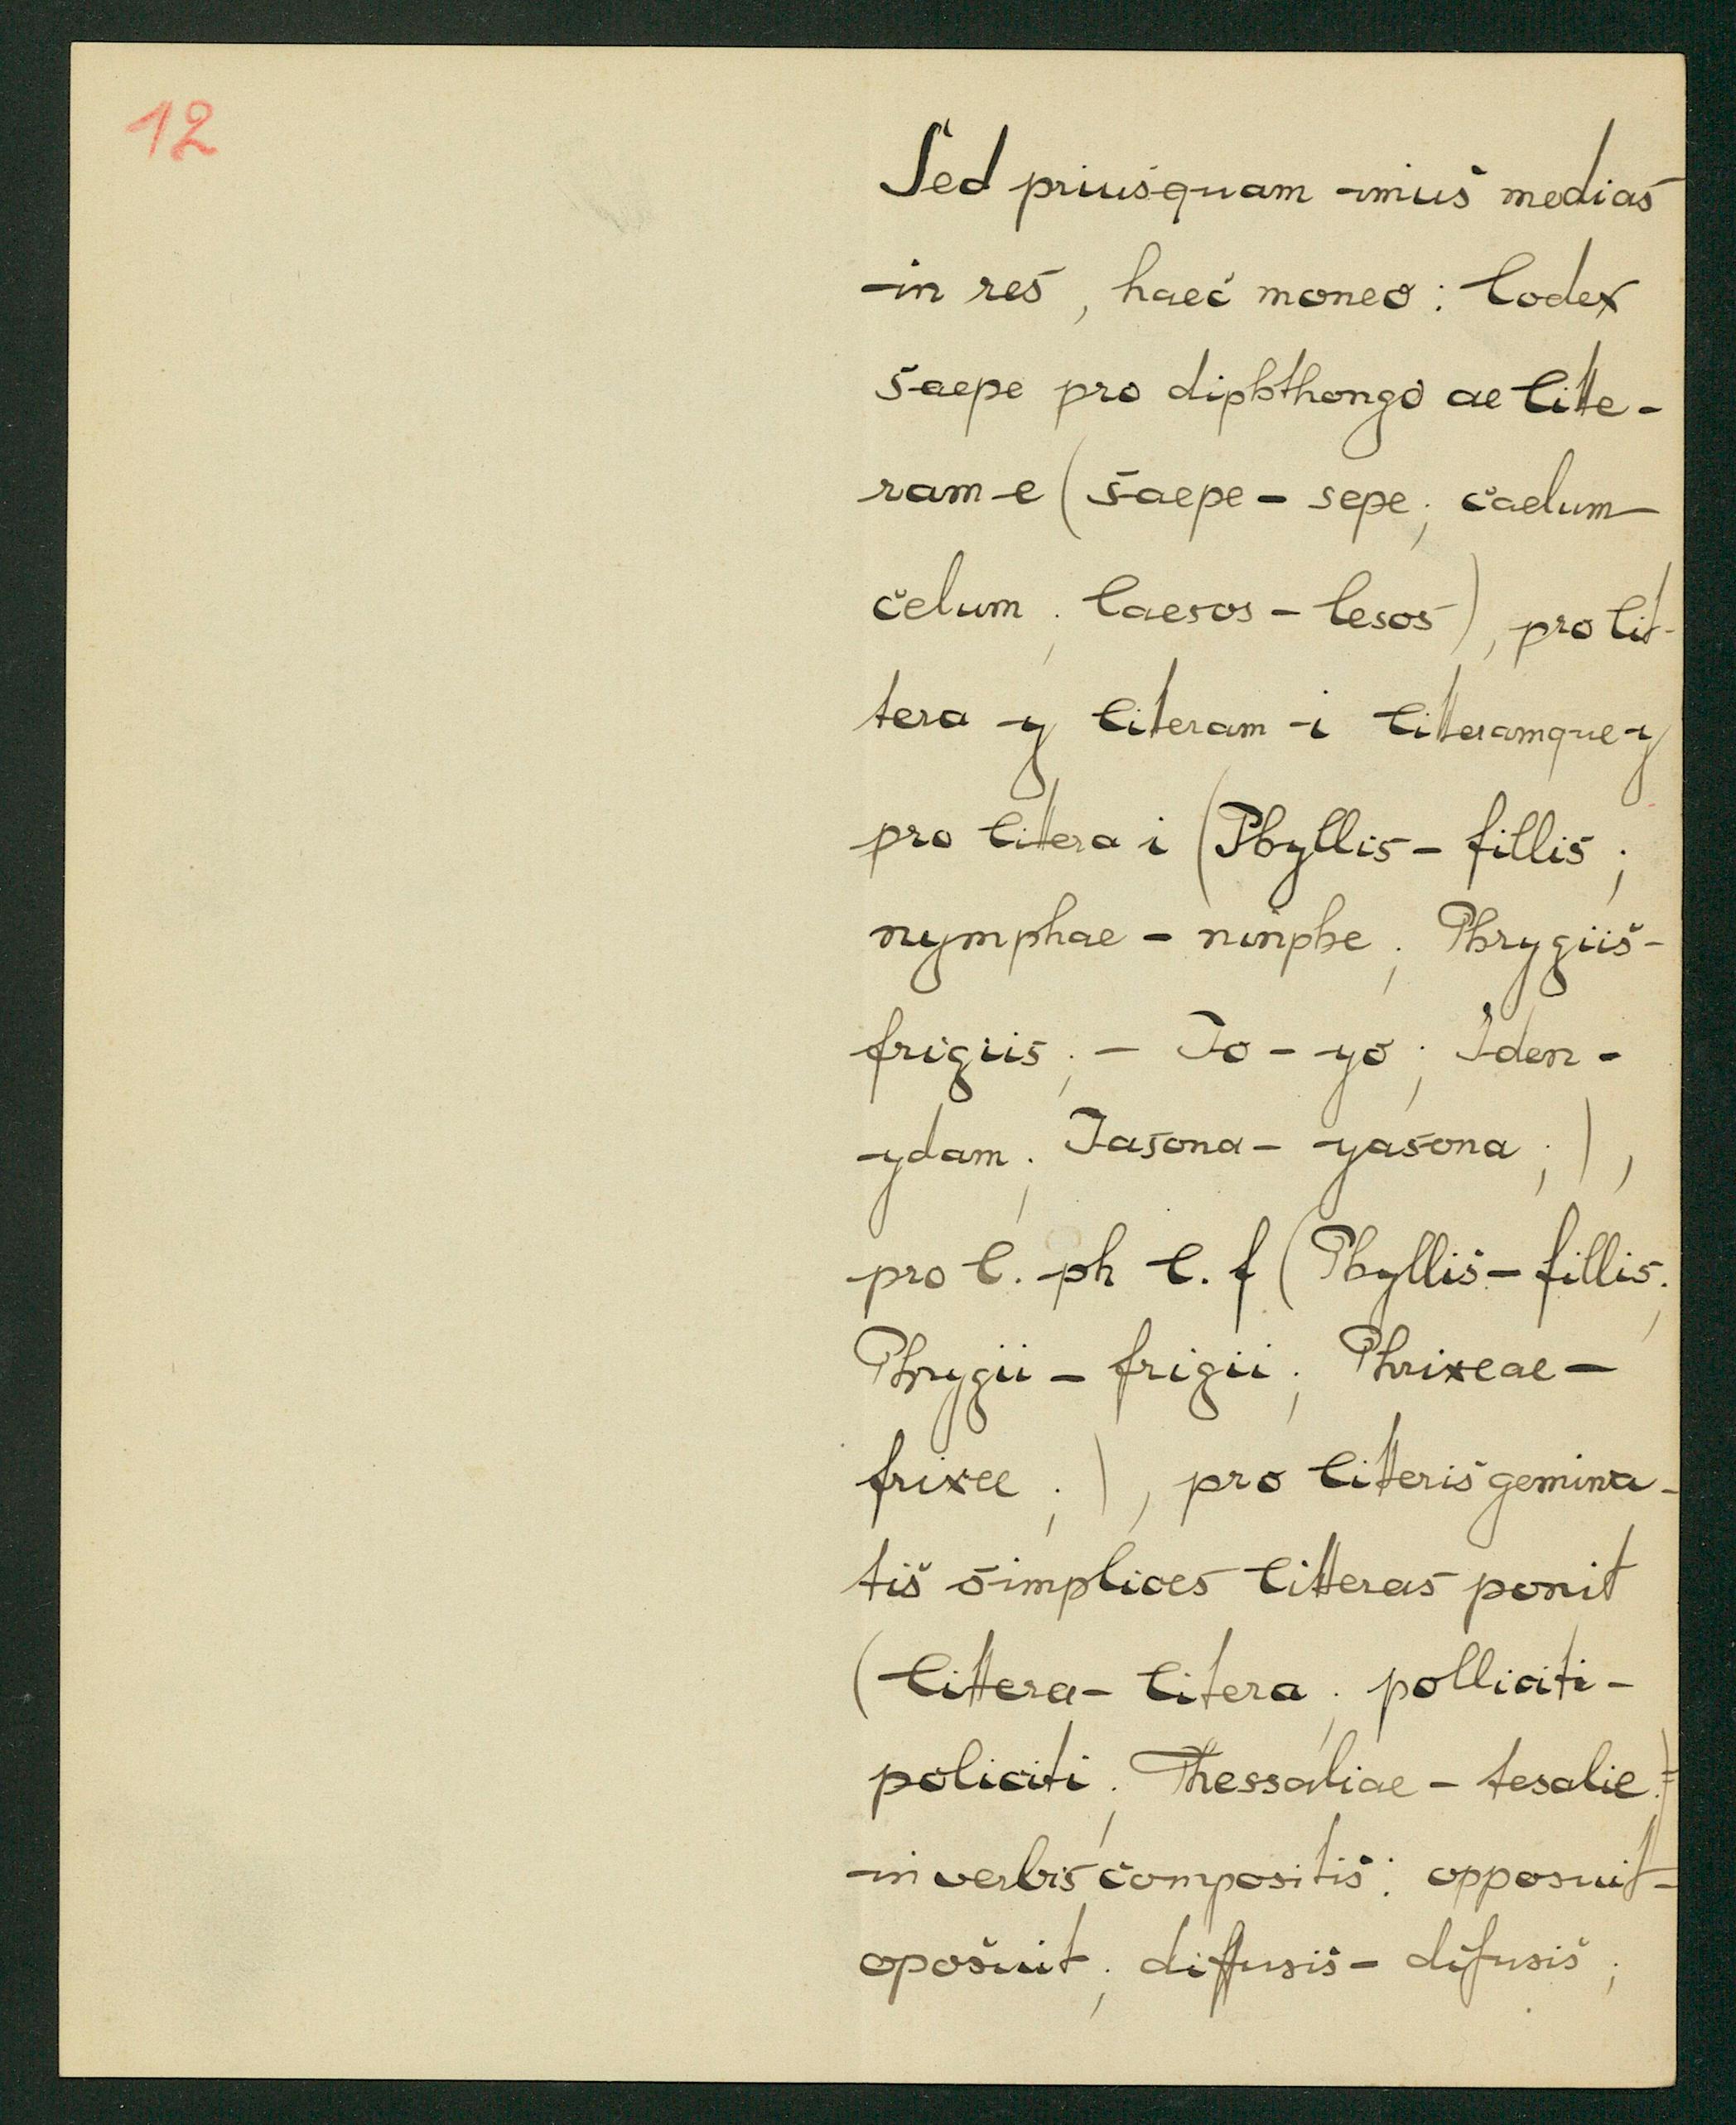 12
Sed priusquam imus medias
in res, haec moneo: Codex
saepe pro diphthongo ae litte-
ram e (saepe - sepe; caelum-
celum; laesos - lesos), pro lit-
tera y literam i litteramque y
pro littera i (Phyllis - fillis;
nymphae - ninphe; Phrygiis-
frigiis; - Io - yo; Iden -
ydam; Iasona - yasona;),
pro l. ph l. f (Phyllis - fillis;
Phrygii - frigii; Phrixeae -
frixee;), pro litteris gemina-
tis simplices litteras ponit
(littera - litera; polliciti -
policiti; Thessaliae - tesalie:)
in verbis compositis: opposuit-
oposuit; diffusis - difusis;